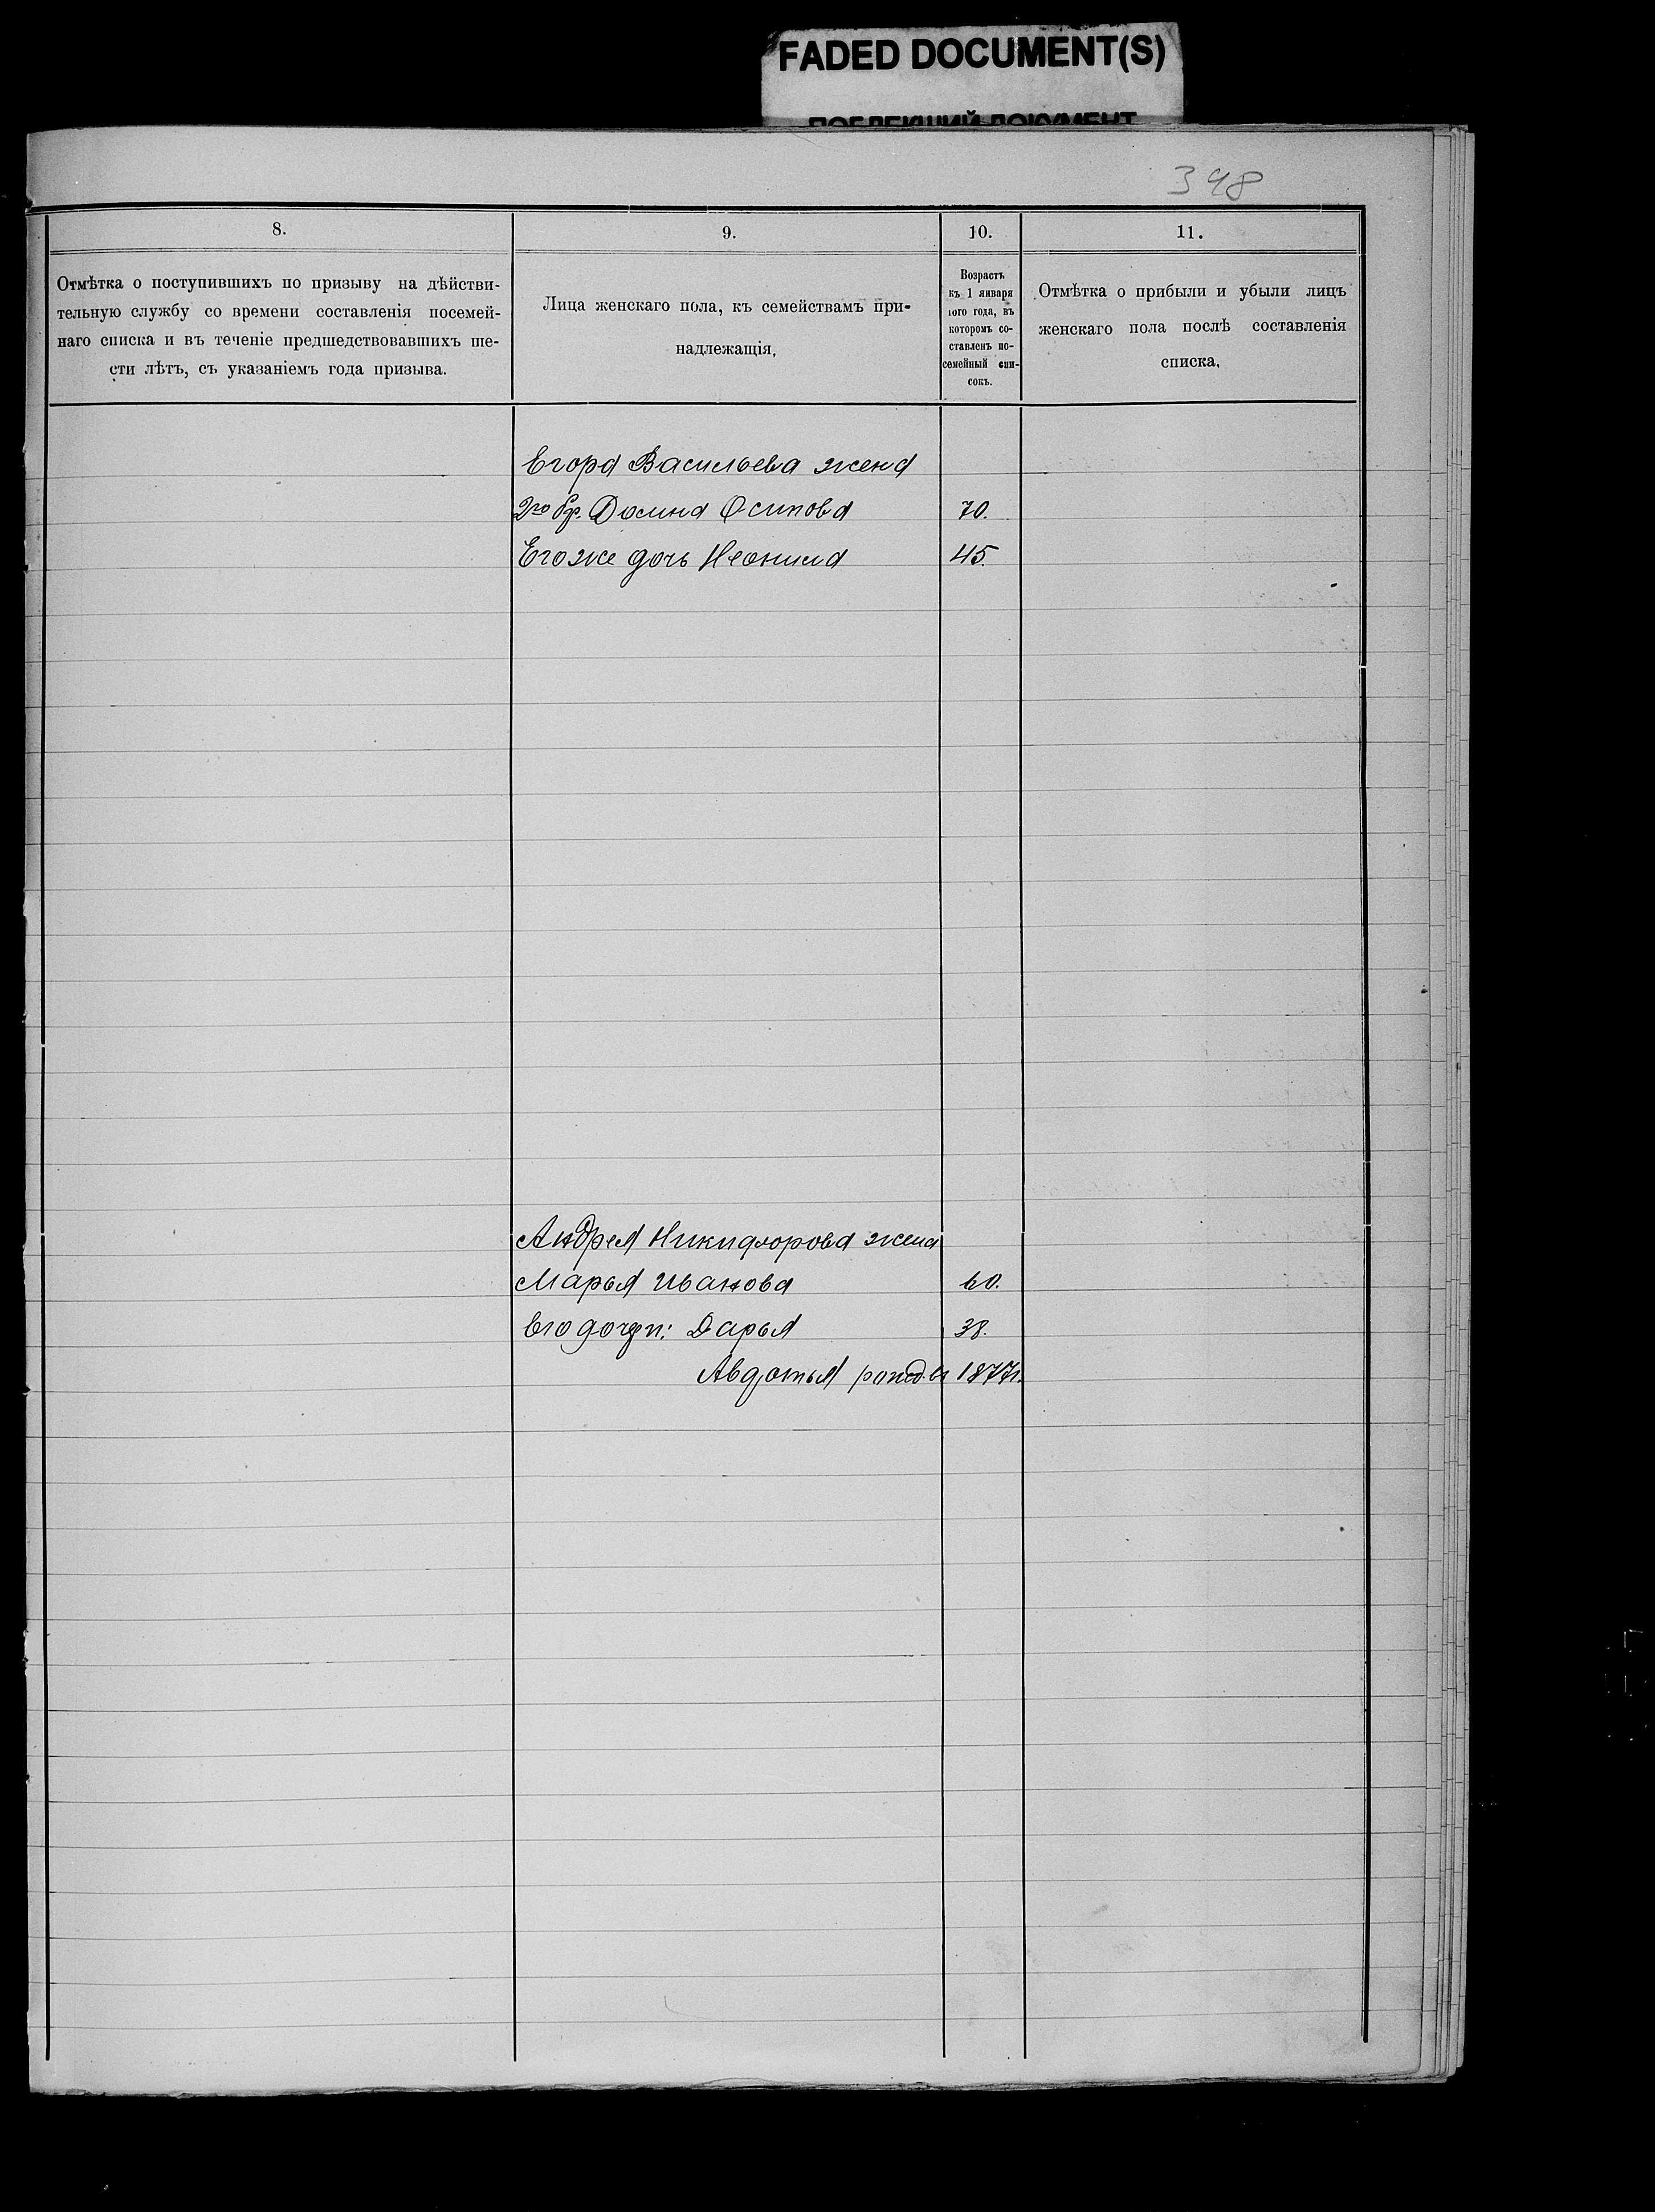 FADED DOCUMENT(S)
ПОБЛЕКШИЙ ДОКУМЕНТ
348
8.
9.
10.
11.
Отмѣтка о поступившихъ по призыву на дѣйстви-
тельную службу со времени составленія посемей-
наго списка и въ теченіе предшедствовавшихъ ше-
сти лѣтъ, съ указаніемъ года призыва.
Лица женскаго пола, къ семействамъ при-
надлежащія,
Возрастъ
къ 1 января
того года, въ
которомъ со-
ставленъ по-
семейный спи-
сокъ.
Отмѣтка о прибыли и убыли лицъ
женскаго пола послѣ составленія
списка,
Егора Васильева жена
2го бр. Домна Осипова 70.
Его же дочь Неонила 45.
Андрея Никифорова жена
Марья Иванова 60.
Его дочери: Дарья 38.
Авдотья рожд. въ 1877г.